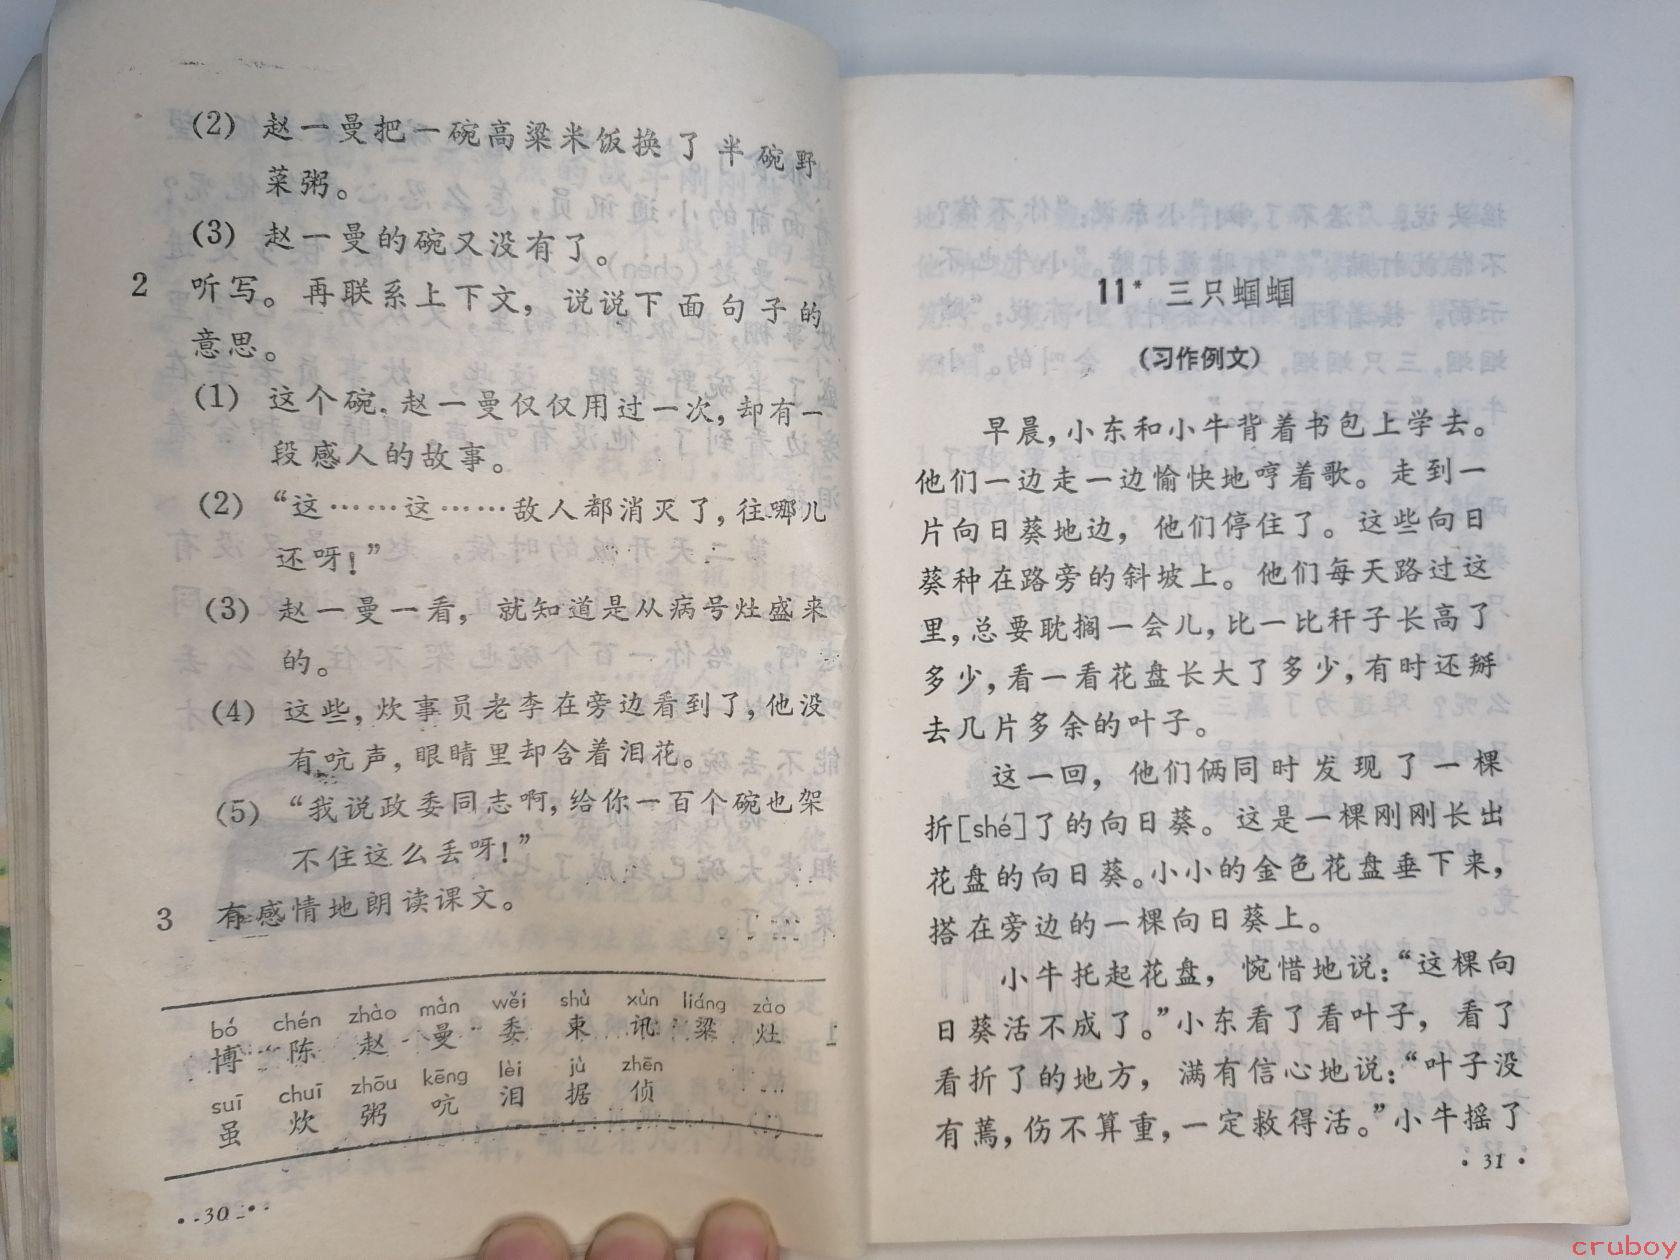 (2) 赵一曼把一碗高粱米饭换了半碗野
菜粥。
(3) 赵一曼的碗又没有了。
2 听写。再联系上下文，说说下面句子的
意思。
(1) 这个碗，赵一曼仅仅用过一次，却有一
段感人的故事。
(2) “这……这……敌人都消灭了，往哪儿
还呀！”
(3) 赵一曼一看，就知道是从病号灶盛来
的。
(4) 这些，炊事员老李在旁边看到了，他没
有吭声，眼睛里却含着泪花。
(5) “我说政委同志啊，给你一百个碗也架
不住这么丢呀！”
3 有感情地朗读课文。
bó chén zhào màn wěi shù xùn liáng zào
博 陈 赵 曼 委 束 讯 粱 灶
suī chuī zhōu kēng lèi jù zhēn
虽 炊 粥 吭 泪 据 侦
·30·
11* 三只蝈蝈
(习作例文)
早晨，小东和小牛背着书包上学去。
他们一边走一边愉快地哼着歌。走到一
片向日葵地边，他们停住了。这些向日
葵种在路旁的斜坡上。他们每天路过这
里，总要耽搁一会儿，比一比秆子长高了
多少，看一看花盘长大了多少，有时还掰
去几片多余的叶子。
这一回，他们俩同时发现了一棵
折[shé]了的向日葵。这是一棵刚刚长出
花盘的向日葵。小小的金色花盘垂下来，
搭在旁边的一棵向日葵上。
小牛托起花盘，惋惜地说：“这棵向
日葵活不成了。”小东看了看叶子，看了
看折了的地方，满有信心地说：“叶子没
有蔫，伤不算重，一定救得活。”小牛摇了
·31·
cruboy